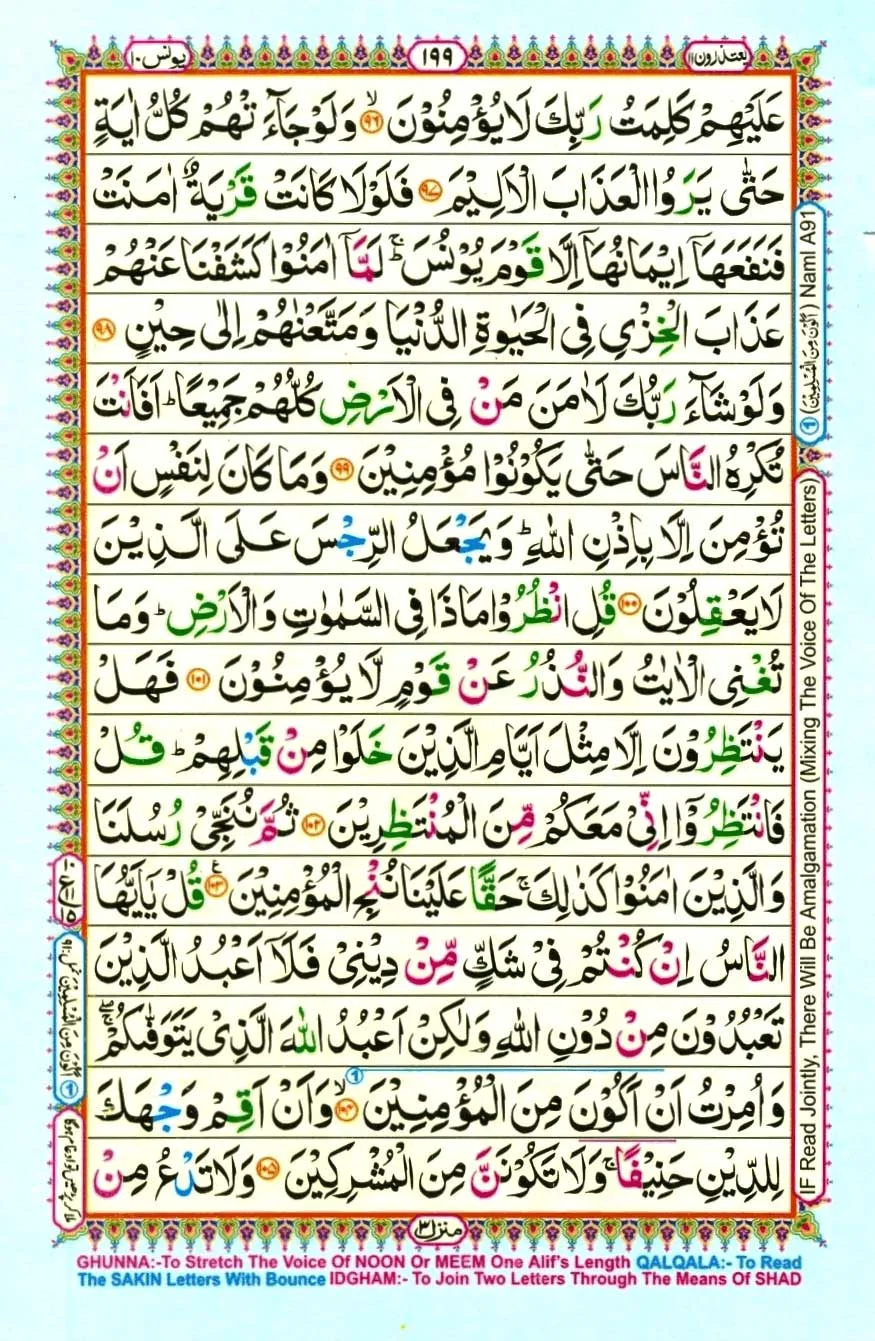 يعتذرون ١١
١٩٩
يونس ١٠
عَلَيْهِمْ كَلِمَتُ رَبِّكَ لَا يُؤْمِنُوْنَ ۙ﴿۹۶﴾ وَلَوْ جَآءَ تْهُمْ كُلُّ اٰيَةٍ
حَتّٰى يَرَوُا الْعَذَابَ الْاَلِيْمَ ﴿۹۷﴾ فَلَوْلَا كَانَتْ قَرْيَةٌ اٰمَنَتْ
فَنَفَعَهَاۤ اِيْمَانُهَاۤ اِلَّا قَوْمَ يُوْنُسَ ؕۚ لَمَّاۤ اٰمَنُوْا كَشَفْنَا عَنْهُمْ
عَذَابَ الْخِزْيِ فِى الْحَيٰوةِ الدُّنْيَا وَمَتَّعْنٰهُمْ اِلٰى حِيْنٍ ﴿۹۸﴾
وَلَوْ شَآءَ رَبُّكَ لَاٰمَنَ مَنْ فِى الْاَرْضِ كُلُّهُمْ جَمِيْعًا ؕ اَفَاَنْتَ
تُكْرِهُ النَّاسَ حَتّٰى يَكُوْنُوْا مُؤْمِنِيْنَ ﴿۹۹﴾ وَمَا كَانَ لِنَفْسٍ اَنْ
تُؤْمِنَ اِلَّا بِاِذْنِ اللّٰهِ ؕ وَيَجْعَلُ الرِّجْسَ عَلَى الَّذِيْنَ
لَا يَعْقِلُوْنَ ﴿۱۰۰﴾ قُلِ انْظُرُوْا مَاذَا فِى السَّمٰوٰتِ وَالْاَرْضِ ؕ وَمَا
تُغْنِى الْاٰيٰتُ وَالنُّذُرُ عَنْ قَوْمٍ لَّا يُؤْمِنُوْنَ ﴿۱۰۱﴾ فَهَلْ
يَنْتَظِرُوْنَ اِلَّا مِثْلَ اَيَّامِ الَّذِيْنَ خَلَوْا مِنْ قَبْلِهِمْ ؕ قُلْ
فَانْتَظِرُوْۤا اِنِّىْ مَعَكُمْ مِّنَ الْمُنْتَظِرِيْنَ ﴿۱۰۲﴾ ثُمَّ نُنَجِّىْ رُسُلَنَا
وَالَّذِيْنَ اٰمَنُوْا كَذٰلِكَ ۚ حَقًّا عَلَيْنَا نُنْجِ الْمُؤْمِنِيْنَ ﴿۱۰۳﴾ قُلْ يٰۤاَيُّهَا
النَّاسُ اِنْ كُنْتُمْ فِىْ شَكٍّ مِّنْ دِيْنِىْ فَلَاۤ اَعْبُدُ الَّذِيْنَ
تَعْبُدُوْنَ مِنْ دُوْنِ اللّٰهِ وَلٰكِنْ اَعْبُدُ اللّٰهَ الَّذِىْ يَتَوَفّٰٮكُمْ ۖۚ
وَاُمِرْتُ اَنْ اَكُوْنَ مِنَ الْمُؤْمِنِيْنَ ۙ﴿۱۰۴﴾ ① وَاَنْ اَقِمْ وَجْهَكَ
لِلدِّيْنِ حَنِيْفًا ۚ وَلَا تَكُوْنَنَّ مِنَ الْمُشْرِكِيْنَ ﴿۱۰۵﴾ وَلَا تَدْعُ مِنْ
منزل ٣
① (اَكُوْنَ مِنَ الْمُسْلِمِيْنَ) Naml A91
IF Read Jointly, There Will Be Amalgamation (Mixing The Voice Of The Letters)
① اَكُوْنَ مِنَ الْمُسْلِمِيْنَ نمل:۹۱
ملا کر پڑھیں تو ادغام ہوگا
GHUNNA:-To Stretch The Voice Of NOON Or MEEM One Alif's Length QALQALA:- To Read
The SAKIN Letters With Bounce IDGHAM:- To Join Two Letters Through The Means Of SHAD